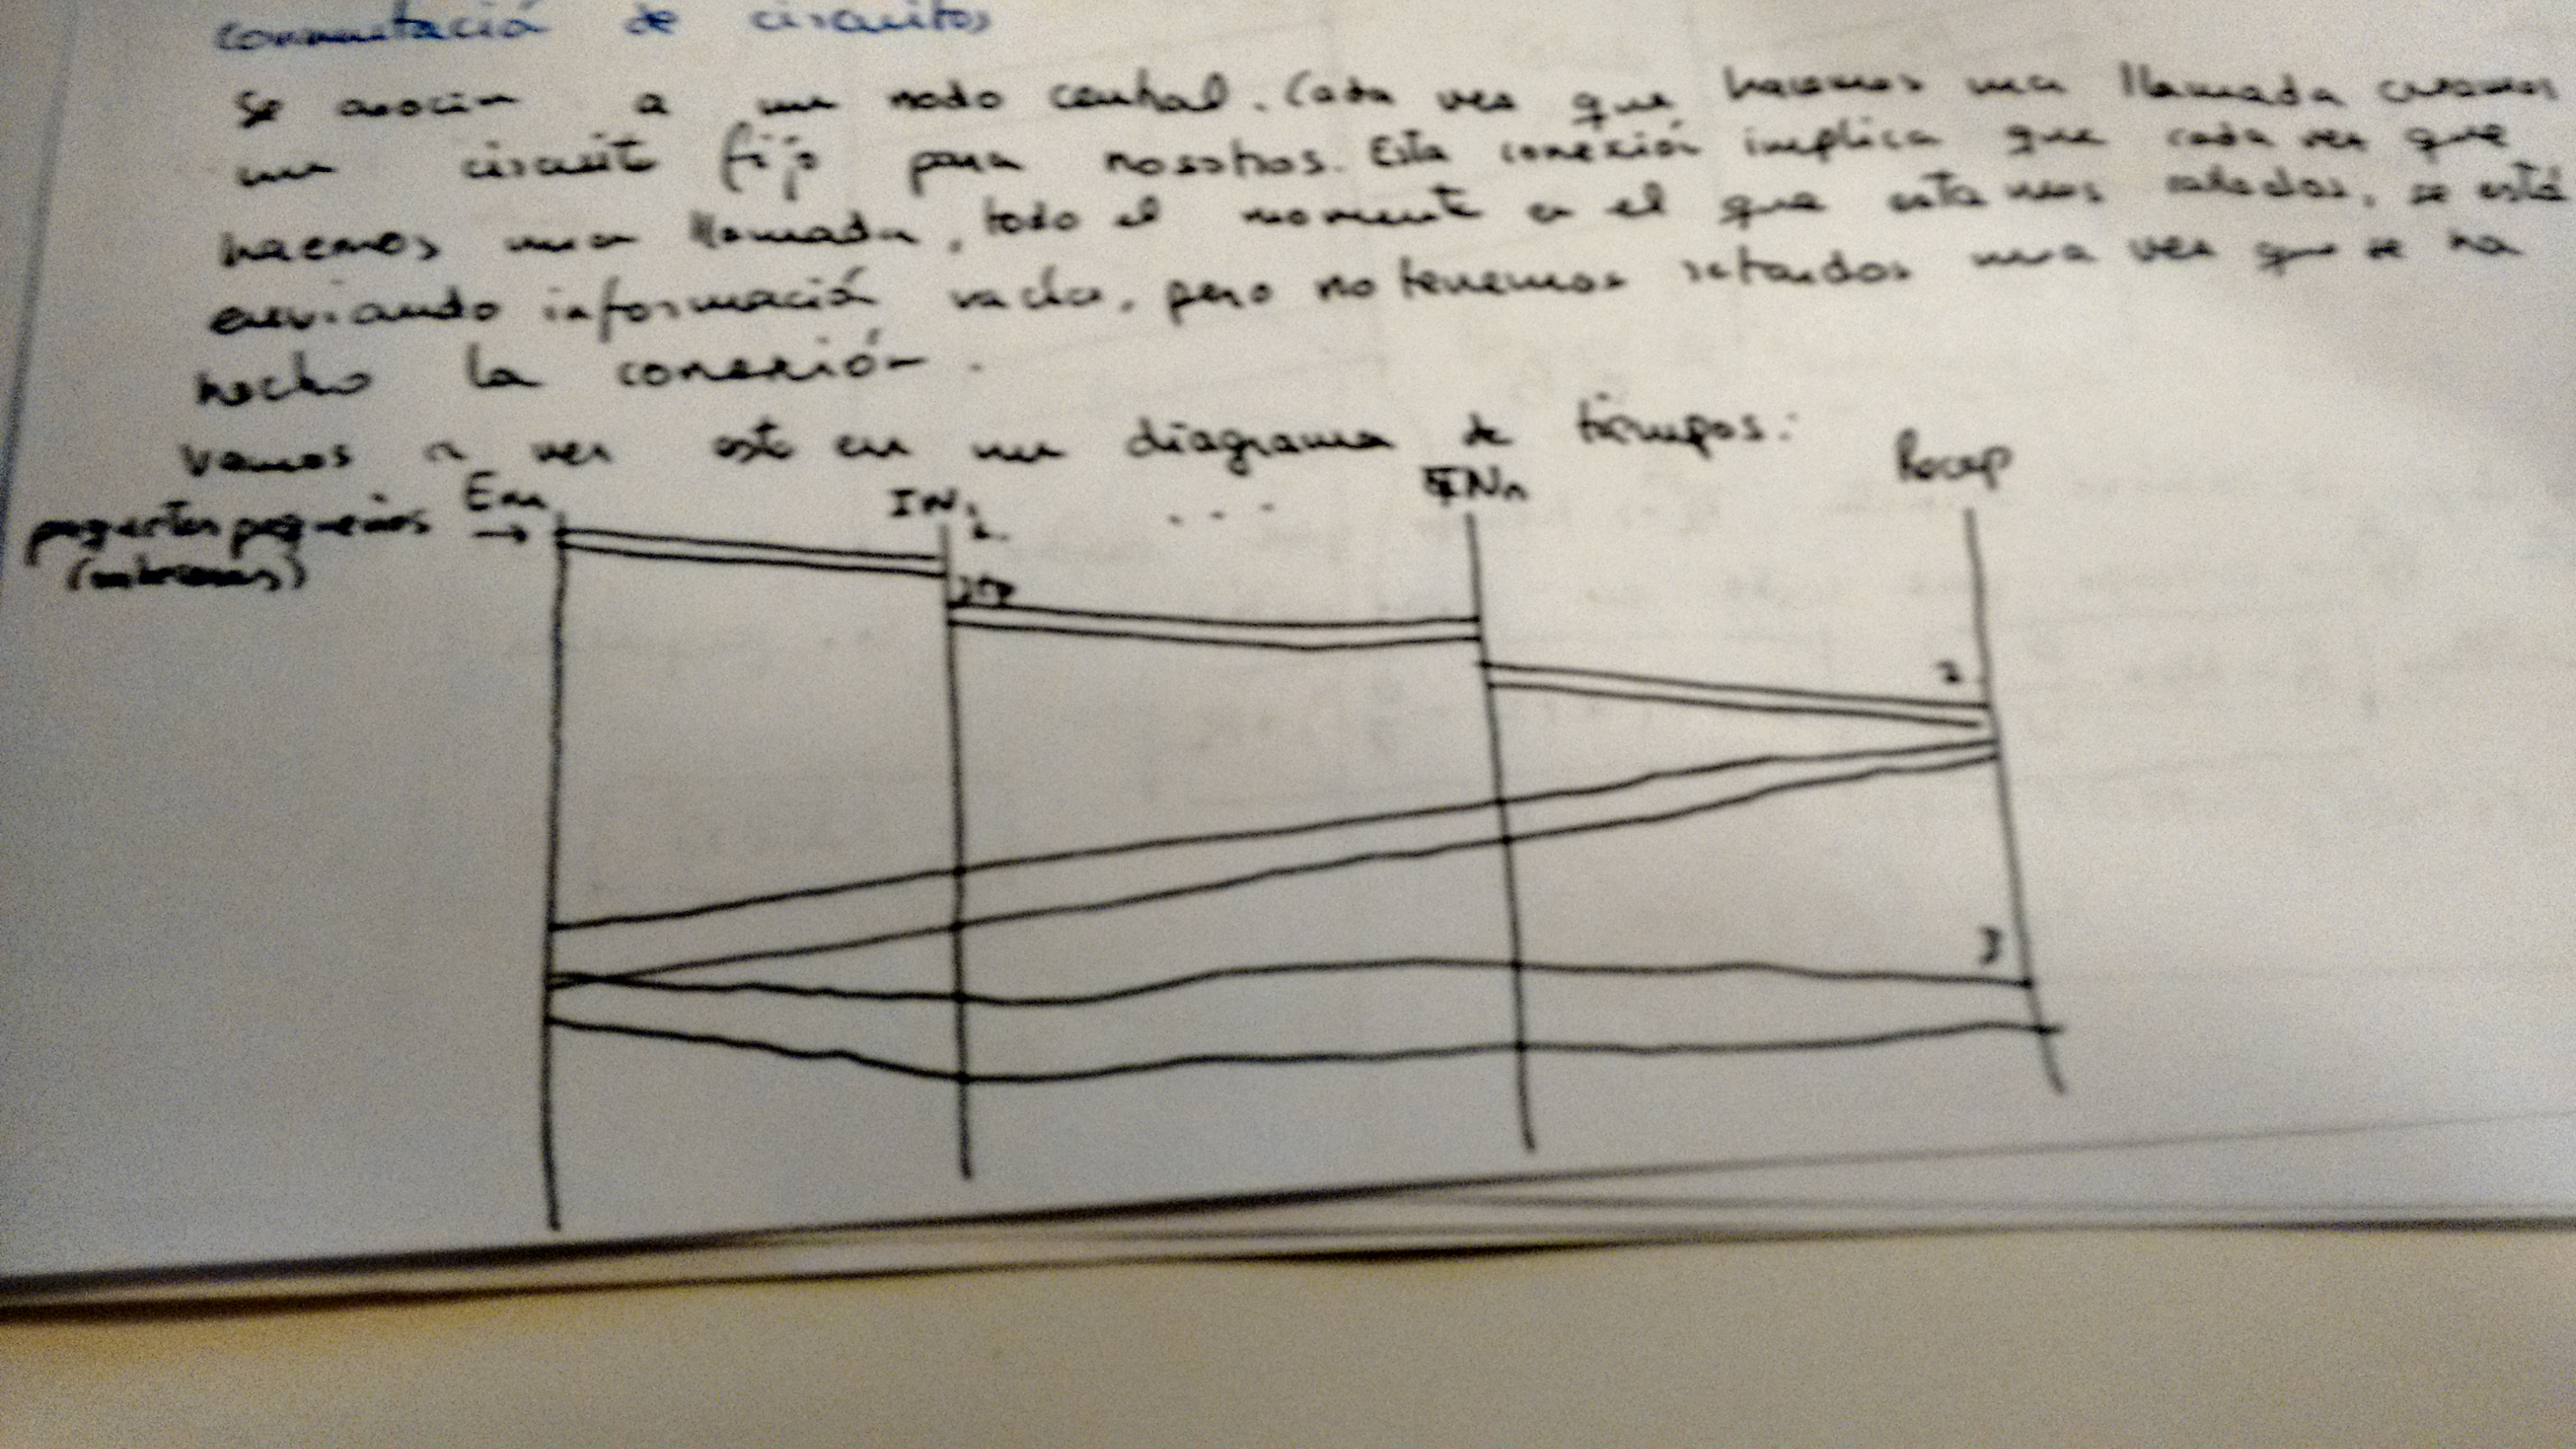 conmutación de circuitos
Se asocia a un nodo central. Cada vez que hacemos una llamada creamos
un circuito fijo para nosotros. Esta conexión implica que cada vez que
hacemos una llamada, todo el momento en el que estamos callados, se está
enviando información vacía, pero no tenemos retardos una vez que se ha
hecho la conexión.
Vamos a ver esto en un diagrama de tiempos:
Em IN1 ... INn Recep
paquetes pequeños →
2
3